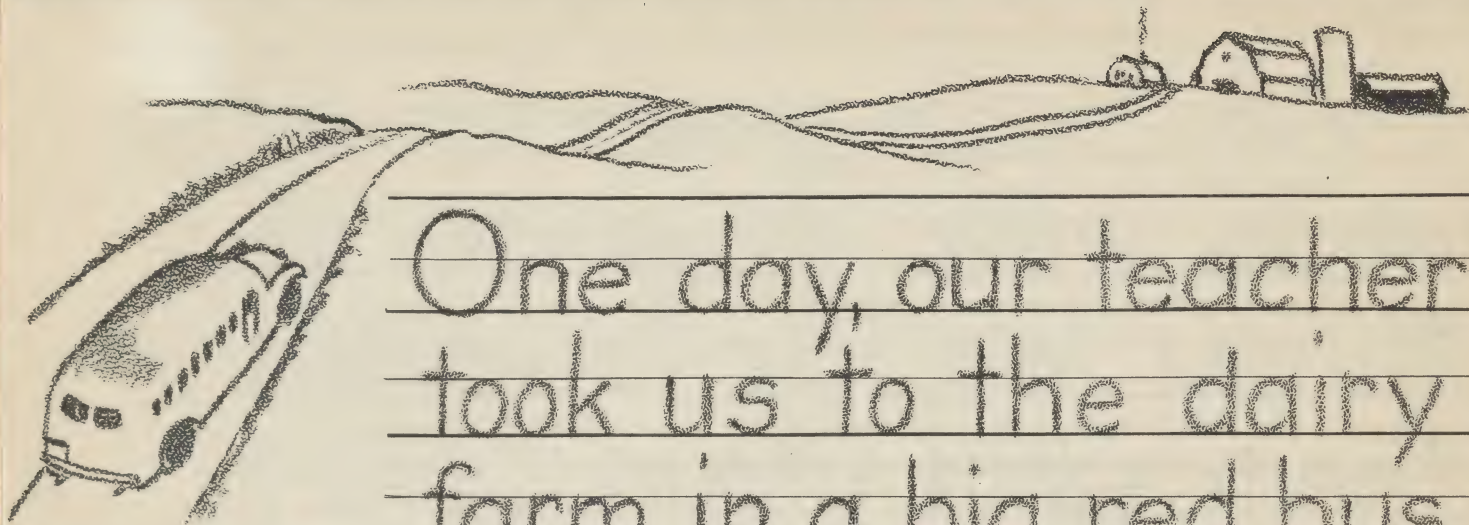 One day, our teacher
took us to the dairy
farm in a big red bus